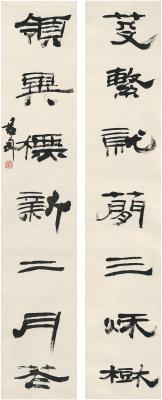 芟繁就簡三秋樹
領異標新二月花